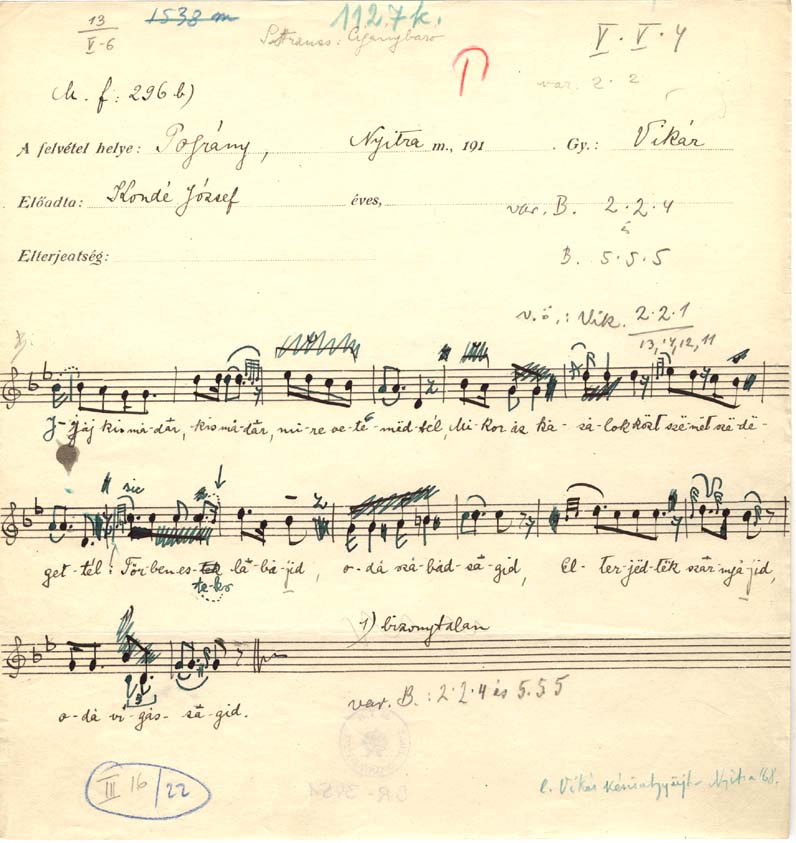 13
V-6
1538 m
1127 k.
Strauss: Cigánybáró
V. V. 4
var. 2. 2
M. f: 296 b)
A felvétel helye: Pográny, Nyitra m., 191 . Gy.: Vikár
Előadta: Kondé József éves,
var. B. 2.2.4
és
B. 5.5.5
Elterjedtség:
v.ö.: Vik. 2.2.1
13, 14, 12, 11
J-jáj kismá-dár, kis-má-dár, mi-re ve-te-méd-tél, Mi-kor áz ká-sá-lok közt szënët szë-dë-
sic
get-tél: Tör-ben es-tek lá-bá-jid, o-dá szá-bád-sá-gid, El-ter-jed-tëk szár-nyá-jid,
te-kr
1) bizonytalan
o-dá ví-gás-sá-gid.
var. B.: 2.2.4 és 5.5.5
III 16/22
Nyitra '68.